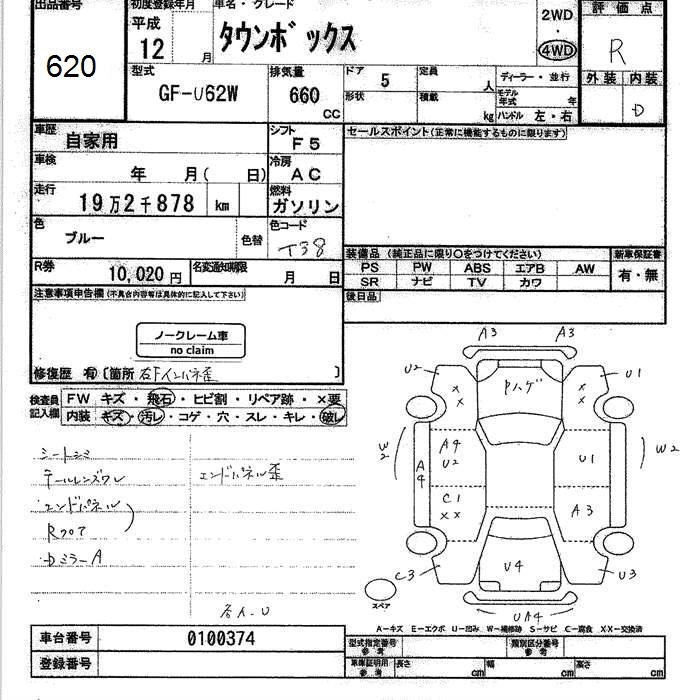 出品番号 初度登録年月 車名・グレード 評価点
620 平成 12 月 タウンボックス 2WD ・ 4WD R
型式 排気量 ドア 定員 ディーラー・並行 外装 内装
GF-U62W 660 CC 5 人 D
形状 積載 kg モデル年式 年 ハンドル 左・右
車歴 自家用 シフト F5 セールスポイント(正常に機能するものに限ります)
車検 年 月( 日) 冷房 AC
走行 19万2千878 km 燃料 ガソリン
色 ブルー 色替 色コード T38
装備品 (純正品に限り○をつけてください) 新車保証書
PS PW ABS エアB AW 有・無
SR ナビ TV カワ
R券 10,020円 名変通知期限 月 日
後日品
注意事項申告欄(不具合内容等は具体的に記入して下さい)
ノークレーム車
no claim
修復歴 有 〔箇所 右Fインパネ歪 〕
検査員記入欄 FW キズ・飛石・ヒビ割・リペア跡・×要
内装 キズ・汚レ・コゲ・穴・スレ・キレ・破レ
シートシミ
テールレンズワレ エンドパネル歪
エンドパネル
Rフロア
DミラーA
A3 A3
U2 Pハゲ U1
× × × ×
W2 A4 A4 U2 U1 W2
C1 ×× A3
C3 U4 U3
スペア UA4
A-キズ E-エクボ U-凹み W-補修跡 S-サビ C-腐食 XX-交換済
車台番号 0100374 型式指定番号 参考 類別区分番号 参考
登録番号 車庫証明用 参考 長さ cm 幅 cm 高さ cm